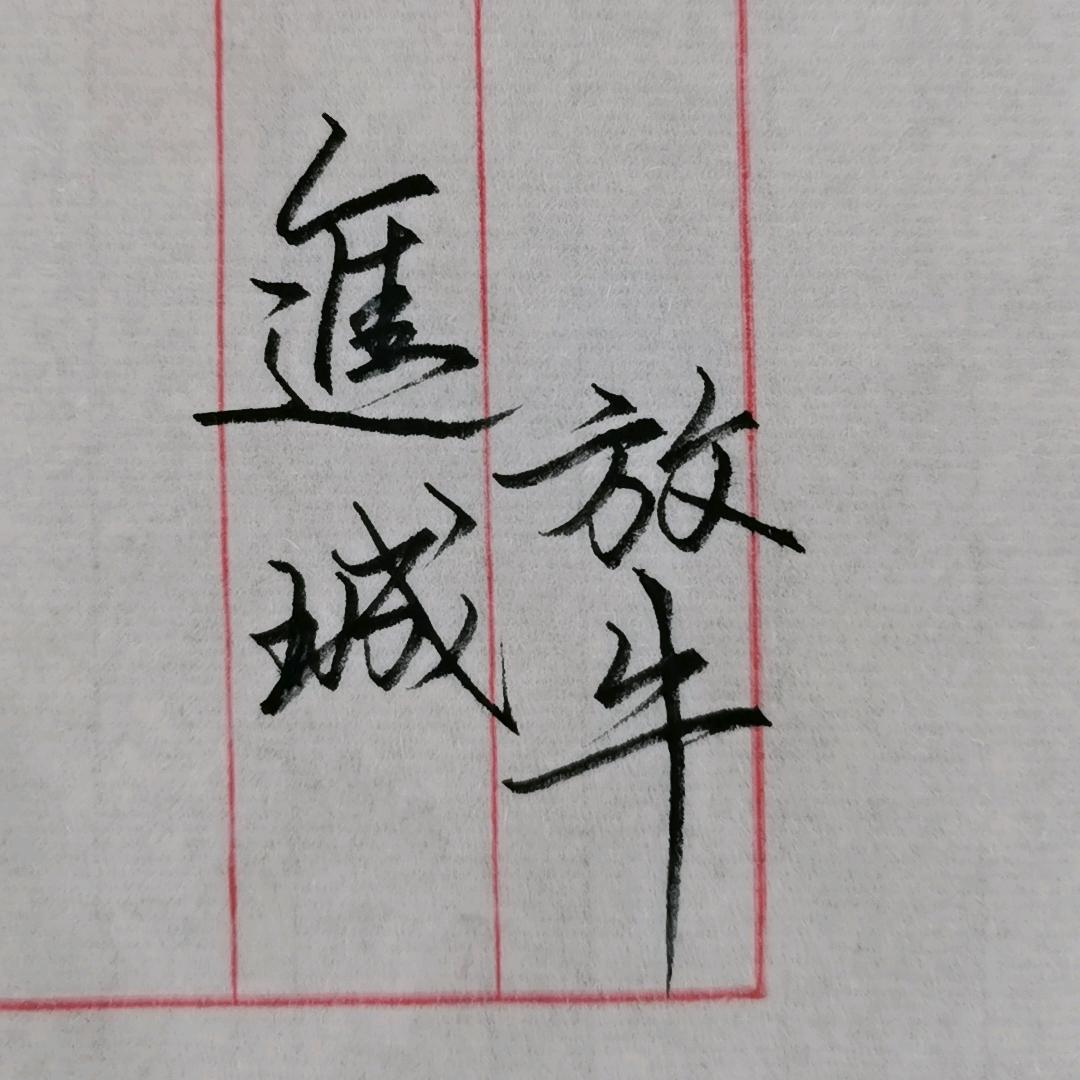 放牛
進城